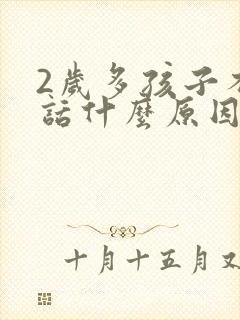 2歲多孩子
話什麼原因
十月十五月又